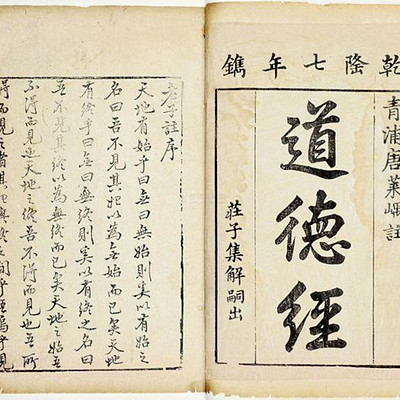 乾隆七年鐫
青浦唐萊嵎註
道德經
莊子集解嗣出
老子註序
天地有始乎曰無曰無始則奚以有始之
名曰吾不見其始以為無始而已矣天地
有終乎曰無曰無終則奚以有終之名曰
吾不見其終以為無終而已矣天地之始吾
不得而見也天地之終吾不得而見也吾所
得而見之者其始與終之間乎